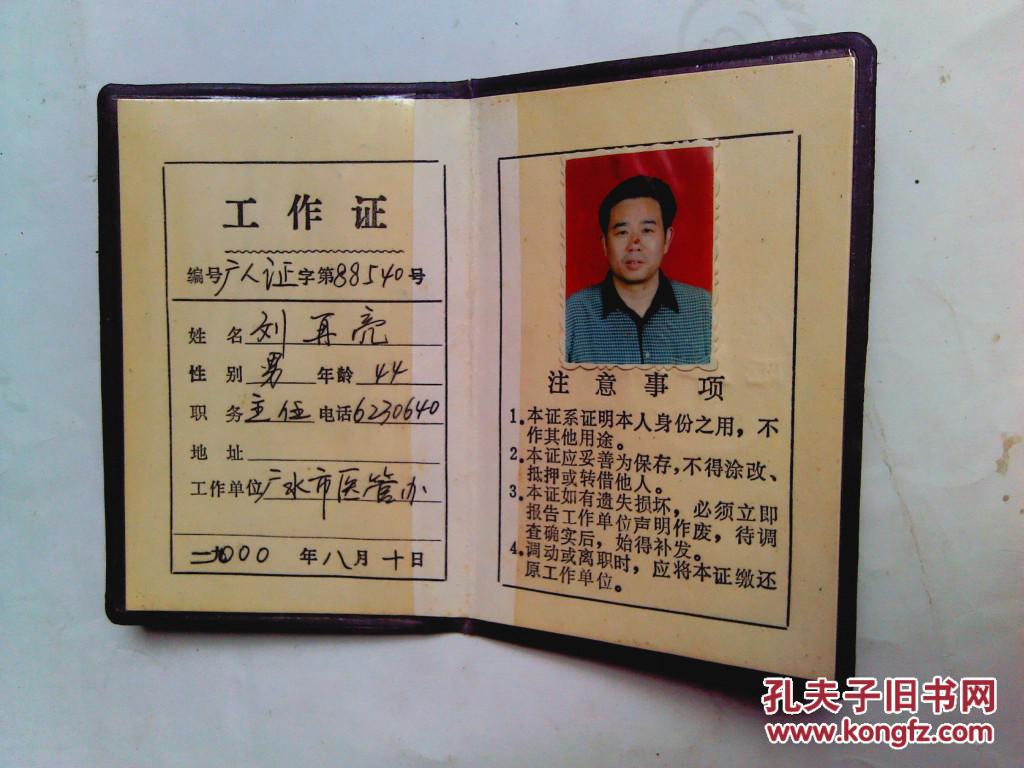 工作证
编号广人证字第88540号
姓名刘再亮
性别男年龄44
职务主任电话6230640
地址
工作单位广水市医管办
二000年八月十日
注意事项
1.本证系证明本人身份之用，不
作其他用途。
2.本证应妥善为保存，不得涂改、
抵押或转借他人。
3.本证如有遗失损坏，必须立即
报告工作单位声明作废，待调
查确实后，始得补发。
4.调动或离职时，应将本证缴还
原工作单位。
孔夫子旧书网
www.kongfz.com